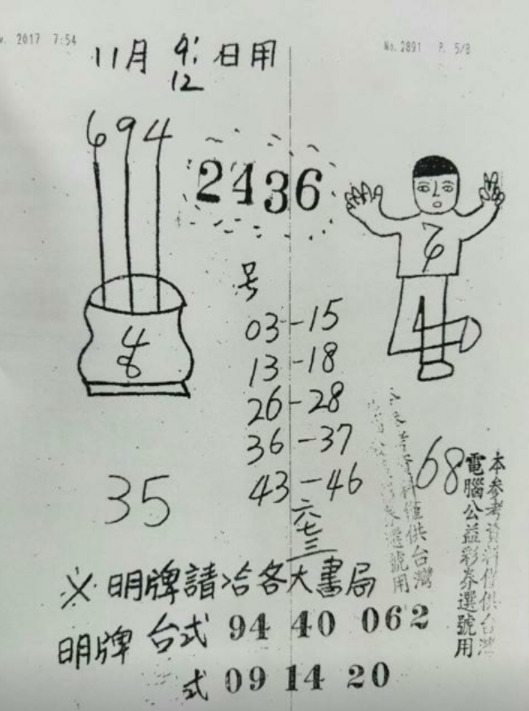 2017 7:54
No. 2891 P. 5/8
11月 9; 12 日用
6 9 4
2436
号
03-15
13-18
26-28
36-37
43-46
六七三
35
68
本參考資料僅供台灣
電腦公益彩券選號用
※明牌請洽各大書局
明牌 台式 94 40 062
式 09 14 20